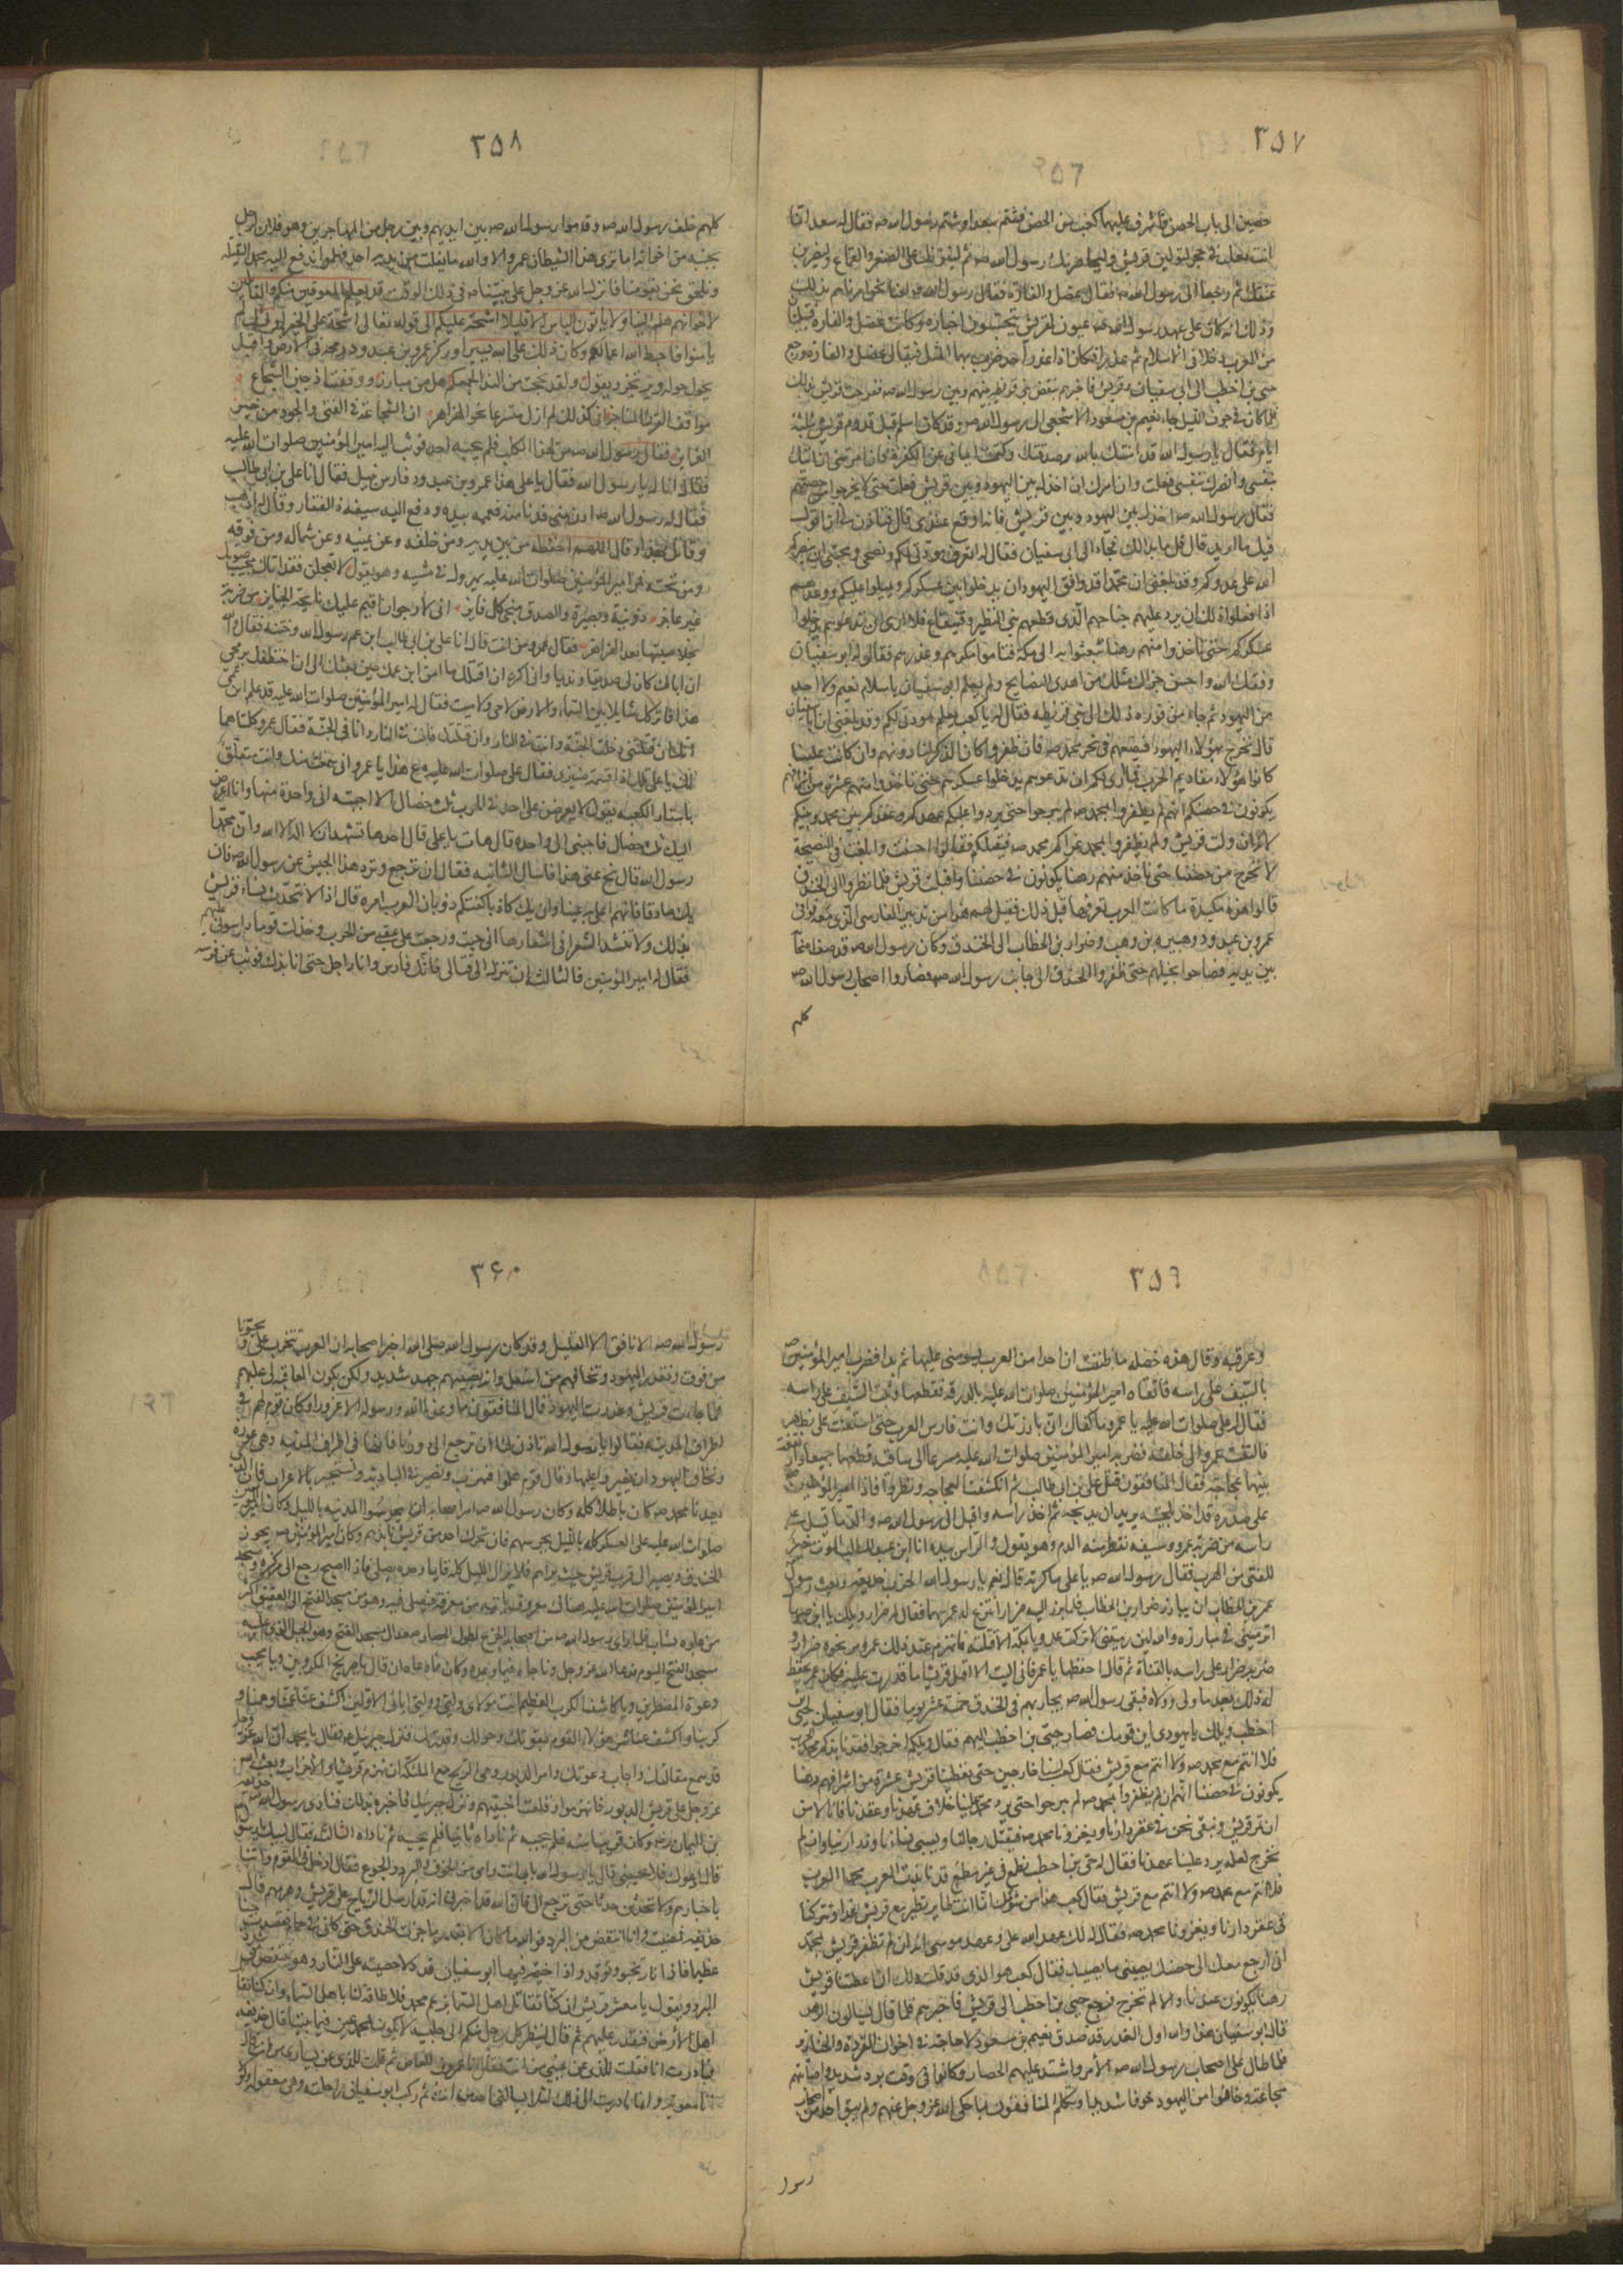 ٣٥٧
حصين الى باب الحصن فاشرف عليهما كعب من الحصن فشتم سعدا وشتم رسول الله صه فقال له سعد انما
انت ثعلب في جحر لتولين قريش وليحاصرنك رسول الله صه ثم لينزلنك على الصغر والقماع وليضربن
عنقك ثم رجعا الى رسول الله صه فقالا عضل والقارة فقال رسول الله صه لعنا نحن امرناهم بذلك
وذلك انه كان على عهد رسول الله صه عيون لقريش يتجسسون اخباره وكانت عضل والقاره قبيلتان
من العرب دخلا في الاسلام ثم غدرا فكان اذا غدر احد ضرب بهما المثل فيقال عضل والقارة ورجع
حيى بن اخطب الى ابى سفيان وقريش فاخبرهم بنقض بنى قريظه بينهم وبين رسول الله صه ففرحت قريش بذلك
فلما كان في جوف الليل جاء نعيم بن مسعود الاشجعى الى رسول الله صه وقد كان اسلم قبل قدوم قريش بثلثة
ايام فقال يا رسول الله قد امنت بالله وصدقتك وكتمت ايمانى عن الكفرة فان امرتنى ان اتيك
بنفسى وانصرك بنفسى فعلت وان امرت ان اخذل بين اليهود وبين قريش فعلت حتى لا يخرجوا من حصنهم
فقال رسول الله صه اخذل بين اليهود وبين قريش فانه اوقع عندى قال فتاذن لى ان اقول
فيك ما اريد قال قل ما بدا لك فجاء الى ابى سفيان فقال له تعرف مودتى لكم ونصحى ومحبتى ان ينصركم
الله على عدوكم وقد بلغنى ان محمدا قد وافق اليهود ان يدخلوا بين عسكركم ويميلوا عليكم ووعدهم
اذا فعلوا ذلك ان يرد عليهم جناحهم الذى قطعه بنى النضير وقينقاع فلا ارى ان تدعوهم يدخلوا
عسكركم حتى تاخذوا منهم رهنا تبعثوا به الى مكة فتامنوا مكرهم وغدرهم فقال له ابو سفيان
وفقك الله واحسن جزاك مثلك من اهدى النصايح ولم يعلم ابو سفيان باسلام نعيم ولا احد
من اليهود ثم جاء من فوره ذلك الى بنى قريظه فقال له يا كعب تعلم مودتى لكم وقد بلغنى ان ابا سفيان
قال نخرج بهؤلاء اليهود فنضعهم في نحر محمد صه فان ظفروا كان الذكر لنا دونهم وان كانت علينا
كانوا هؤلاء مقاديم الحرب فما ارى لكم ان تدعوهم يدخلوا عسكركم حتى تاخذوا منهم عشرة من اشرافهم
يكونون في حصنكم انهم ان لم يظفروا بمحمد صه لم يبرحوا حتى يردوا عليكم عهدكم وعقدكم بين محمد وبينكم
لانه ان ولت قريش ولم يظفروا بمحمد غزاكم محمد صه فيقتلكم فقالوا احسنت وابلغت في النصيحة
لا نخرج من حصننا حتى ناخذ منهم رهنا يكونون في حصننا واقبلت قريش فلما نظروا الى الخندق
قالوا هذه مكيدة ما كانت العرب تعرفها قبل ذلك فقيل لهم هذا من تدبير الفارسى الذى معه فوافى
عمرو بن عبد ود وهبيره بن وهب وضرار بن الخطاب الى الخندق وكان رسول الله صه قد صف اصحابه
بين يديه فصاحوا بخيلهم حتى ظفروا الخندق الى جانب رسول الله صه فصاروا اصحاب رسول الله صه
كلهم
٣٥٨
كلهم خلف رسول الله صه وقدموا رسول الله صه بين ايديهم وقال رجل من المهاجرين وهو فلان لرجل
بجنبه من اخوانه اما ترى هذا الشيطان عمرو الا والله ما يفلت من يديه احد فهلموا ندفع اليه محمدا ليقتله
ونلحق نحن بقومنا فانزل الله عز وجل على نبيه صه في ذلك الوقت قد يعلم الله المعوقين منكم والقائلين
لاخوانهم هلم الينا ولا ياتون الباس الا قليلا اشحة عليكم الى قوله تعالى اشحة على الخير اولئك لم
يؤمنوا فاحبط الله اعمالهم وكان ذلك على الله يسيرا وركز عمرو بن عبد ود رمحه في الارض واقبل
يجول حوله ويرتجز ويقول ولقد بححت من النداء بجمعكم هل من مبارز ووقفت اذ جبن الشجاع
مواقف القرن المناجز انى كذلك لم ازل متسرعا نحو الهزاهز ان الشجاعة في الفتى والجود من خير
الغرايز فقال رسول الله صه من لهذا الكلب فلم يجبه احد فوثب اليه امير المؤمنين صلوات الله عليه
فقال انا له يا رسول الله فقال يا على هذا عمرو بن عبد ود فارس يليل فقال انا على بن ابى طالب
فقال له رسول الله صه ادن منى فدنا منه فعممه بيده ودفع اليه سيفه ذا الفقار وقال له اذهب
وقاتل بهذا وقال اللهم احفظه من بين يديه ومن خلفه وعن يمينه وعن شماله ومن فوقه
ومن تحته فمر امير المؤمنين صلوات الله عليه يهرول في مشيه وهو يقول لا تعجلن فقد اتاك مجيب صوتك
غير عاجز ذو نية وبصيرة والصدق منجى كل فايز انى لارجو ان اقيم عليك نايحة الجنايز من ضربة
نجلاء يبقى صيتها بعد الهزاهز فقال عمرو من انت قال انا على بن ابى طالب ابن عم رسول الله وختنه فقال والله
ان اباك كان لى صديقا ونديما وانى اكره ان اقتلك ما امن ابن عمك حين بعثك الى ان اختطفك برمحى
هذا فاتركك شايلا بين السماء والارض لا حى ولا ميت فقال له امير المؤمنين صلوات الله عليه قد علم ابن عمى
انك ان قتلتنى دخلت الجنة وانت في النار وان قتلتك فانت في النار وانا في الجنة فقال عمرو كلتاهما
لك يا على تلك اذا قسمة ضيزى فقال على صلوات الله عليه دع هذا يا عمرو انى سمعت منك وانت متعلق
باستار الكعبه يقول لا يعرضن على احد في الحرب ثلث خصال الا اجبته الى واحدة منها وانا اعرض
اليك ثلث خصال فاجبنى الى واحده قال هات يا على قال احدها تشهد ان لا اله الا الله وان محمدا
رسول الله قال نح عنى هذا فاسال الثانيه فقال ان ترجع وترد هذا الجيش عن رسول الله صه فان
يك صادقا فانتم اعلى به عينا وان يك كاذبا كفتكم ذوبان العرب امره قال اذا لا تتحدث نساء قريش
بذلك ولا تنشد الشعراء في اشعارها انى جبنت ورجعت على عقبى من الحرب وخذلت قوما راسونى عليهم
فقال له امير المؤمنين فالثالثه ان تنزل الى قتالى فانك فارس وانا راجل حتى انابذك فوثب عن فرسه
٣٥٩
وعرقبه وقال هذه خصلة ما ظننت ان احدا من العرب يسومنى عليها ثم بدا فضرب امير المؤمنين صه
بالسيف على راسه فاتقاه امير المؤمنين صلوات الله عليه بالدرقه فقطعها وثبت السيف على راسه
فقال له على صلوات الله عليه يا عمرو ما كفاك انى بارزتك وانت فارس العرب حتى استعنت على بظهير
فالتفت عمرو الى خلفه فضربه امير المؤمنين صلوات الله عليه مسرعا الى ساقيه فقطعهما جميعا وارتفعت
بينهما عجاجة فقال المنافقون قتل على بن ابى طالب ثم انكشفت العجاجه ونظروا فاذا امير المؤمنين صه
على صدره قد اخذ بلحيته يريد ان يذبحه ثم اخذ راسه واقبل الى رسول الله صه والدماء تسيل على
راسه من ضربة عمرو وسيفه تقطر منه الدم وهو يقول والراس بيده انا ابن عبد المطلب الموت خير
للفتى من الهرب فقال رسول الله صه يا على ماكرته قال نعم يا رسول الله الحرب خديعة وبعث رسول
عمر بن الخطاب ان يبارز ضرار بن الخطاب فلما برز اليه ضرار انتزع له عمر سهما فقال له ضرار ويلك يا ابن صهاك
اترمينى في مبارزه والله لئن رميتنى لا تركت عدويا بمكة الا قتلته فانهزم عند ذلك عمر ومر نحوه ضرار و
ضربه ضرار على راسه بالقناة ثم قال احفظها يا عمر فانى اليت الا اقتل قرشيا ما قدرت عليه فكان عمر يحفظ
له ذلك بعد ما ولى وولاه فبقى رسول الله صه يحاربهم في الخندق خمسة عشر يوما فقال ابو سفيان لحيى بن
اخطب ويلك يا يهودى اين قومك فصار حيى بن اخطب اليهم فقال ويلكم اخرجوا فقد نابذكم محمد الحرب
فلا انتم مع محمد صه ولا انتم مع قريش فقال كعب لسنا خارجين حتى تعطينا قريش عشرة من اشرافهم رهنا
يكونون في حصننا انهم ان لم يظفروا بمحمد صه لم يبرحوا حتى يرد محمد علينا عهدنا وعقدنا فانا لا نامن
ان تمر قريش ونبقى نحن في عقر دارنا ويغزونا محمد صه فيقتل رجالنا ويسبى نساءنا وذرارينا وان لم
نخرج لعله يرد علينا عهدنا فقال له حيى بن اخطب تطمع في غير مطمع قد نابذت العرب محمدا الحرب
فلا انتم مع محمد صه ولا انتم مع قريش فقال كعب هذا من شؤمك انما انت طاير تطير مع قريش غدا وتتركنا
في عقر دارنا ويغزونا محمد صه فقال له لك عهد الله على وعهد موسى انه ان لم تظفر قريش بمحمد
انى ارجع معك الى حصنك يصيبنى ما يصيبك فقال كعب هو الذى قد قلته لك ان اعطتنا قريش
رهنا يكونون عندنا والا لم نخرج فرجع حيى بن اخطب الى قريش فاخبرهم فلما قال يسالون الرهن
قال ابو سفيان هذا والله اول الغدر قد صدق نعيم بن مسعود لا حاجة في اخوان القردة والخنازير
فلما طال على اصحاب رسول الله صه الامر واشتد عليهم الحصار وكانوا في وقت برد شديد واصابتهم
مجاعة وخافوا من اليهود خوفا شديدا وتكلم المنافقون بما حكى الله عز وجل عنهم ولم يبق احد من اصحاب
رسول
٣۶٠
رسول الله صه الا نافق الا القليل وقد كان رسول الله صلى الله اخبر اصحابه ان العرب تتحزب على ويجيؤنا
من فوق وتغدر اليهود ونخافهم من اسفل وانه يصيبهم جهد شديد ولكن يكون العاقبه لى عليهم
فلما جاءت قريش وغدرت اليهود قال المنافقون ما وعدنا الله ورسوله الا غرورا وكان قوم لهم دور في
اطراف المدينه فقالوا يا رسول الله تاذن لنا ان نرجع الى دورنا فانها في اطراف المدينه وهى عورة
ونخاف اليهود ان يغيروا عليها وقال قوم هلموا فنهرب ونصير في الباديه ونستجير بالاعراب فان الذى
يعدنا محمد صه كان باطلا كله وكان رسول الله صه امر اصحابه ان يحرسوا المدينه بالليل وكان امير المؤمنين
صلوات الله عليه على العسكر كله بالليل يحرسهم فان تحرك احد من قريش نابذهم وكان امير المؤمنين صه يجوز
الخندق ويصير الى قرب قريش حيث يراهم فلا يزال الليل كله قايما وحده يصلى فاذا اصبح رجع الى مركزه ومسجد
امير المؤمنين صلوات الله عليه هناك معروف ياتيه من يعرفه فيصلى فيه وهو من مسجد الفتح الى العقيق اكثر
من غلوة نشاب فلما راى رسول الله صه من اصحابه الجزع لطول الحصار صعد الى مسجد الفتح وهو الجبل الذى عليه
مسجد الفتح اليوم فدعا الله عز وجل وناجاه فيما وعده وكان مما دعاه ان قال يا صريخ المكروبين ويا مجيب
دعوة المضطرين ويا كاشف الكرب العظيم انت مولاى ووليى وولى ابائى الاولين اكشف عنا غمنا وهمنا و
كربنا واكشف عنا شر هؤلاء القوم بقوتك وحولك وقدرتك فنزل جبرئيل صه فقال يا محمد ان الله عز وجل
قد سمع مقالتك واجاب دعوتك وامر الدبور وهى الريح مع الملئكة ان تهزم قريشا والاحزاب وبعث الله
عز وجل على قريش الدبور فانهزموا وقلعت اخبيتهم ونزل جبرئيل فاخبره بذلك فنادى رسول الله صه حذيفه
بن اليمان رضه وكان قريبا منه فلم يجبه ثم ناداه ثانيا فلم يجبه ثم ناداه الثالثه فقال لبيك يا رسول الله
قال ادعوك فلا تجيبنى قال يا رسول الله بابى انت وامى من الخوف والبرد والجوع فقال ادخل في القوم واتنا
باخبارهم ولا تحدثن حدثا حتى ترجع الى فان الله قد اخبرنى انه قد ارسل الرياح على قريش وهزمهم قال
حذيفه فمضيت وانا انتفض من البرد فوالله ما كان الا بقدر ما جزت الخندق حتى كانى في حمام فقصدت خباء
عظيما فاذا نار تخبو وتوقد واذا خيمة فيها ابو سفيان قد دلا خصيته على النار وهو ينتفض من شدة
البرد ويقول يا معشر قريش ان كنا نقاتل اهل السماء بزعم محمد فلا طاقة لنا باهل السماء وان كنا نقاتل
اهل الارض فنقدر عليهم ثم قال لينظر كل رجل منكم الى جليسه لا يكون لمحمد عين فيما بيننا قال حذيفه
فبادرت انا فقلت للذى عن يمينى من انت فقال انا عمرو بن العاص ثم قلت للذى عن يسارى من انت قال
انا معوية وانما بادرت الى ذلك لئلا يسالنى احد من انت ثم ركب ابو سفيان راحلته وهى معقوله ولو